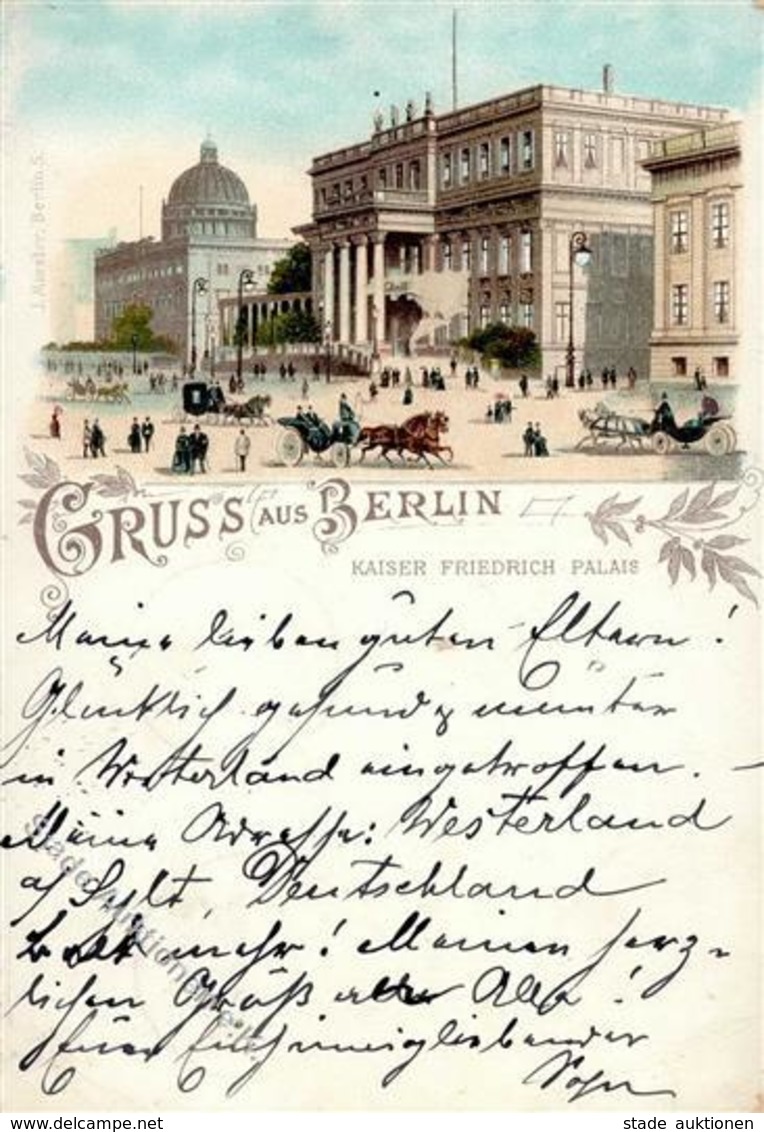 J. Miesler, Berlin S.
GRUSS AUS BERLIN
KAISER FRIEDRICH PALAIS
Meine lieben guten Eltern!
Glücklich gesund & munter
in Westerland eingetroffen. —
Meine Adresse: Westerland
a/ Sylt, Deutschland
Bald mehr! Meinen herz-
lichen Gruß an Alle!
Euer Euch innigliebender
Sohn
Stade Auktionen
stade auktionen